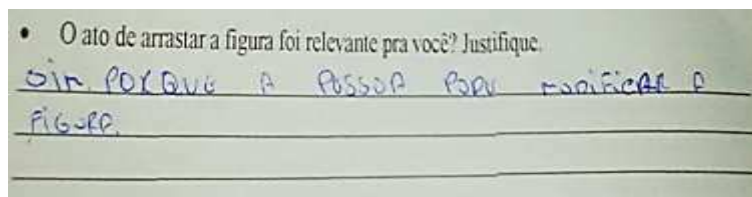 • O ato de arrastar a figura foi relevante pra você? Justifique.
Sim PORQUE A PESSOA PODE MODIFICAR A
FIGURA.